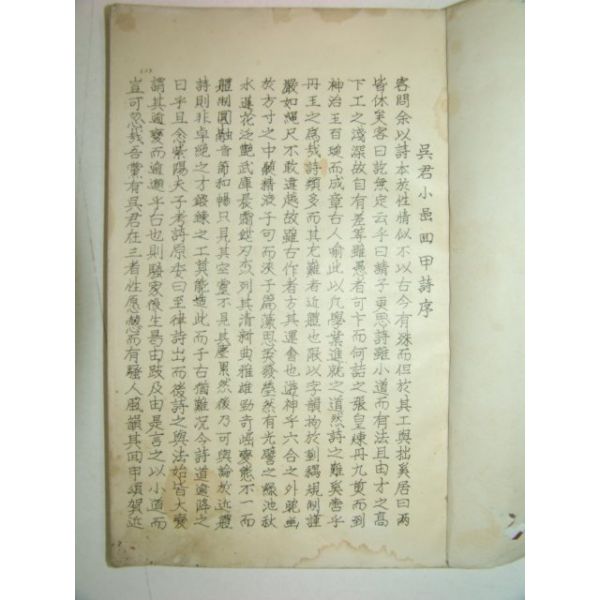 吳君小邑回甲詩序
客問余以詩本於性情似不以古今有殊而但於其工與拙奚居曰兩
皆休矣客曰訖無定云乎曰請子更思詩雖小道而有法且由才之高
下工之淺深故自有差等雖愚者可卞而何詰之張皇煉丹九煎而到
神治玉百琢而成章古人喻此以凡學業進就之道然詩之難奚啻乎
丹玉之爲哉詩類多而其尤難者近體也限以字韻拘於到耦規制謹
嚴如繩尺不敢違越故雖古作者方其運會也遊神乎六合之外範
於方寸之中 精液于句而浹于篇藻思英發瑩然有光譬之綠池秋
水蓮花泛艷武庫長霜鋩刃森列其清新典雅雄勁奇崛變態不一而
體制圓融音節和暢只見其空靈不見其塵累然後乃可與論於近體
詩則非卓絶之才鍛鍊之工莫能造此而于古猶難况今詩道逾降之
曰乎且念紫陽夫子考詩原本曰至律詩出而後詩之與法始皆大變
謂其逾變而逾遫乎古也則騷家後生曷由跂及由是言之以小道而
豈可忽哉吾黨有吳君在三者性愿慤而有騷人風韻其回甲頌賀近